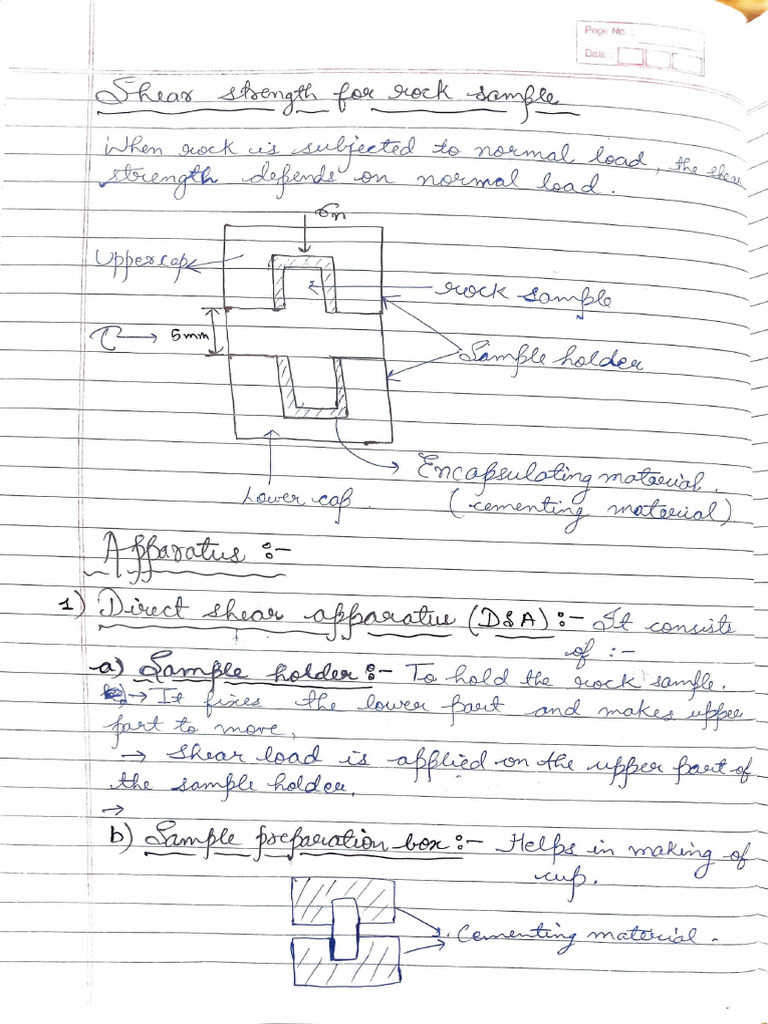 Page No. :
Date :
Shear strength for rock sample
When rock is subjected to normal load, the shear
strength depends on normal load.
σn
Upper cap
rock sample
τ → 5mm
Sample holder
Encapsulating material.
Lower cap.
(cementing material)
Apparatus :-
1) Direct shear apparatus (DSA) :- It consists
of :-
a) Sample holder :- To hold the rock sample.
→ It fixes the lower part and makes upper
part to move,
→ Shear load is applied on the upper part of
the sample holder.
→
b) Sample preparation box :- Helps in making of
cup.
Cementing material.